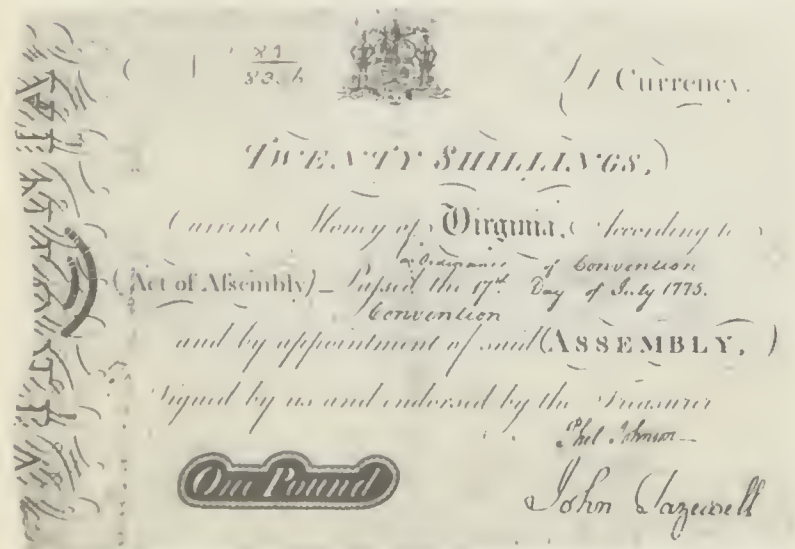 1 Currency.
TWENTY SHILLINGS,
Current Money of Virginia, According to
or Ordinance of Convention
(Act of Afsembly) Pafsed the 17th Day of July 1775.
Convention
and by appointment of said (ASSEMBLY,)
Signed by us and endorsed by the Treasurer
Phil Johnson
One Pound
John Tazewell